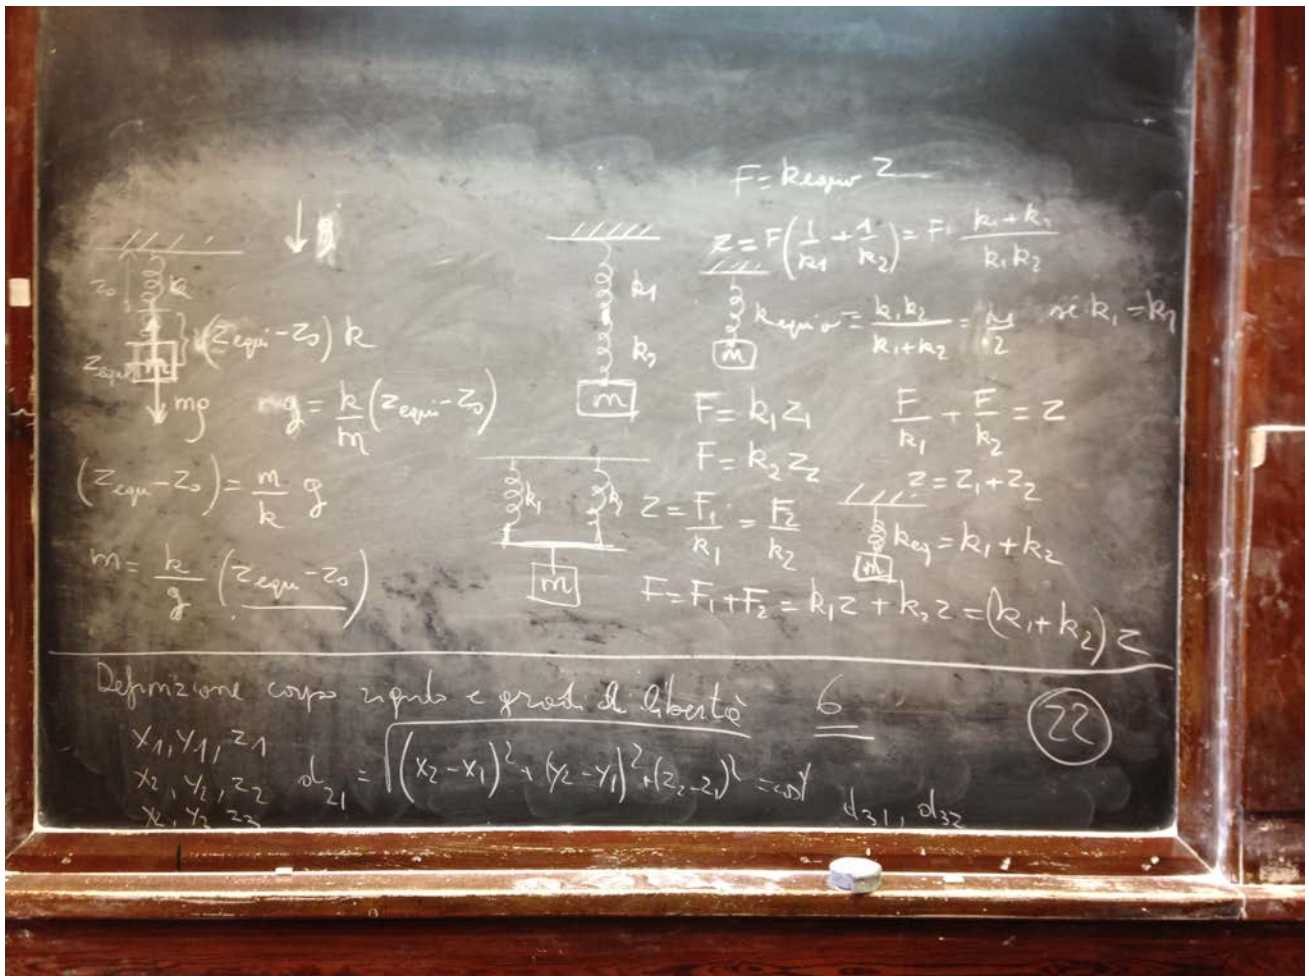 z₀ k
(z_equi - z₀) k
z_equi m
mg
g = k/m (z_equi - z₀)
(z_equi - z₀) = m/k g
m = k/g (z_equi - z₀)
k₁
k₂
m
F = k_equiv z
z = F(1/k₁ + 1/k₂) = F · k₁ + k₂ / k₁k₂
m k_equiv = k₁k₂ / k₁ + k₂ = k₁/2 se k₁ = k₂
F = k₁z₁ F/k₁ + F/k₂ = z
F = k₂z₂ z = z₁ + z₂
k₁ k₂ z = F₁/k₁ = F₂/k₂
m
m k_eq = k₁ + k₂
F = F₁ + F₂ = k₁z + k₂z = (k₁ + k₂) z
Definizione corpo rigido e gradi di libertà 6
22
x₁, y₁, z₁
x₂, y₂, z₂ d₂₁ = √(x₂ - x₁)² + (y₂ - y₁)² + (z₂ - z₁)² = cost
d₃₁, d₃₂